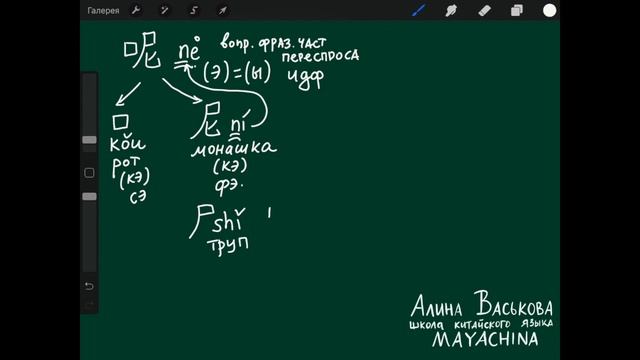 Галерея
呢 ne̊ вопр. фраз. част
переспроса
(э)=(ы) идф
口 尼 ní
kǒu монашка
рот (кэ)
(кэ) фэ.
сэ
尸 shī
труп
Алина Васькова
школа китайского языка
MAYACHINA